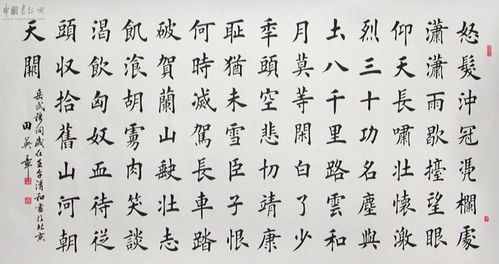 怒髮沖冠凴欄處
瀟瀟雨歇擡望眼
仰天長嘯壯懷激
烈三十功名塵與
土八千里路雲和
月莫等閑白了少
秊頭空悲切靖康
恥猶未雪臣子恨
何時滅駕長車踏
破賀蘭山缺壯志
飢湌胡虜肉笑談
渴飲匈奴血待從
頭收拾舊山河朝
天闕
岳武穆詞歲在壬午清和書於北京
田英章
中國書法網